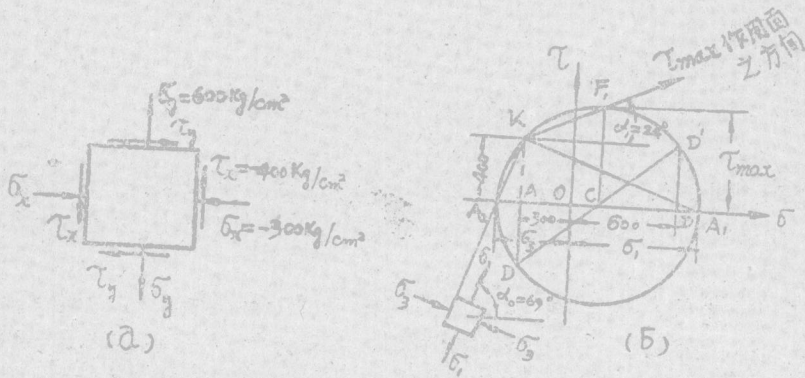 σy=600Kg/cm²
τy
τx=-400Kg/cm²
σx
τx
σx=-300Kg/cm²
τy
σy
(a)
τ
τmax 作用面
之方向
F₁
K
α₁=24°
D'
τmax
-400
A₂
A
O
C
A₁
σ
-300
600
σ₃
σ₁
D
σ₁
α₀=69°
σ₃
σ₃
σ₁
(б)